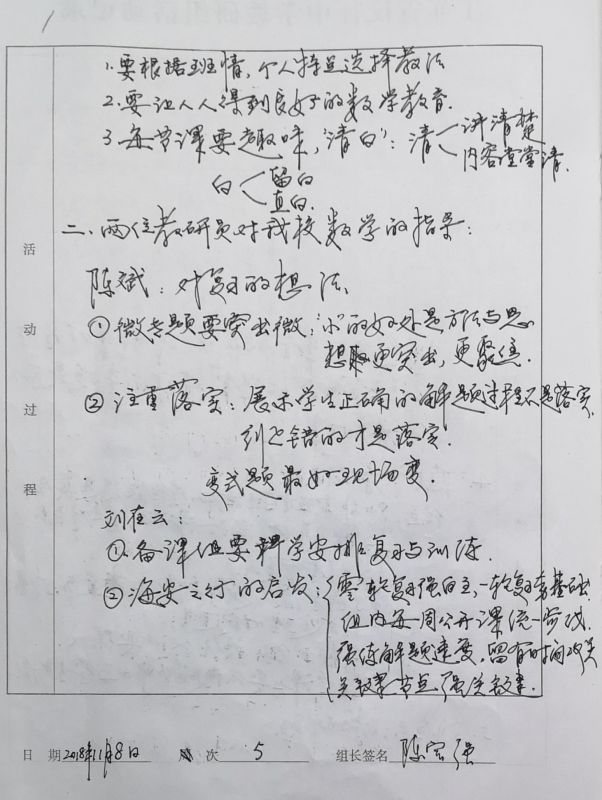 1.要根据班情,个人特点选择教法
2.要让人人得到良好的数学教育.
3.每节课要趣味,"清白":清 讲清楚
内容堂堂清.
白 留白
直白.
二、两位教研员对我校数学的指导:
陈斌:对复习的想法
①微专题要突出微,"小"的好处是方法与思
想更突出,更聚焦.
②注重落实:展示学生正确的解题过程不是落实,
纠正错的才是落实.
变式题最好现场变.
刘在云:
①备课组要科学安排复习与训练.
②海安之行的启发:零轮复习强自主,一轮复习夯基础
组内每周公开课统一
强练解题速度,留有时间攻关
关键节点强关键.
活动过程
日 期 2018年11月8日 次 5 组长签名 陈宏强